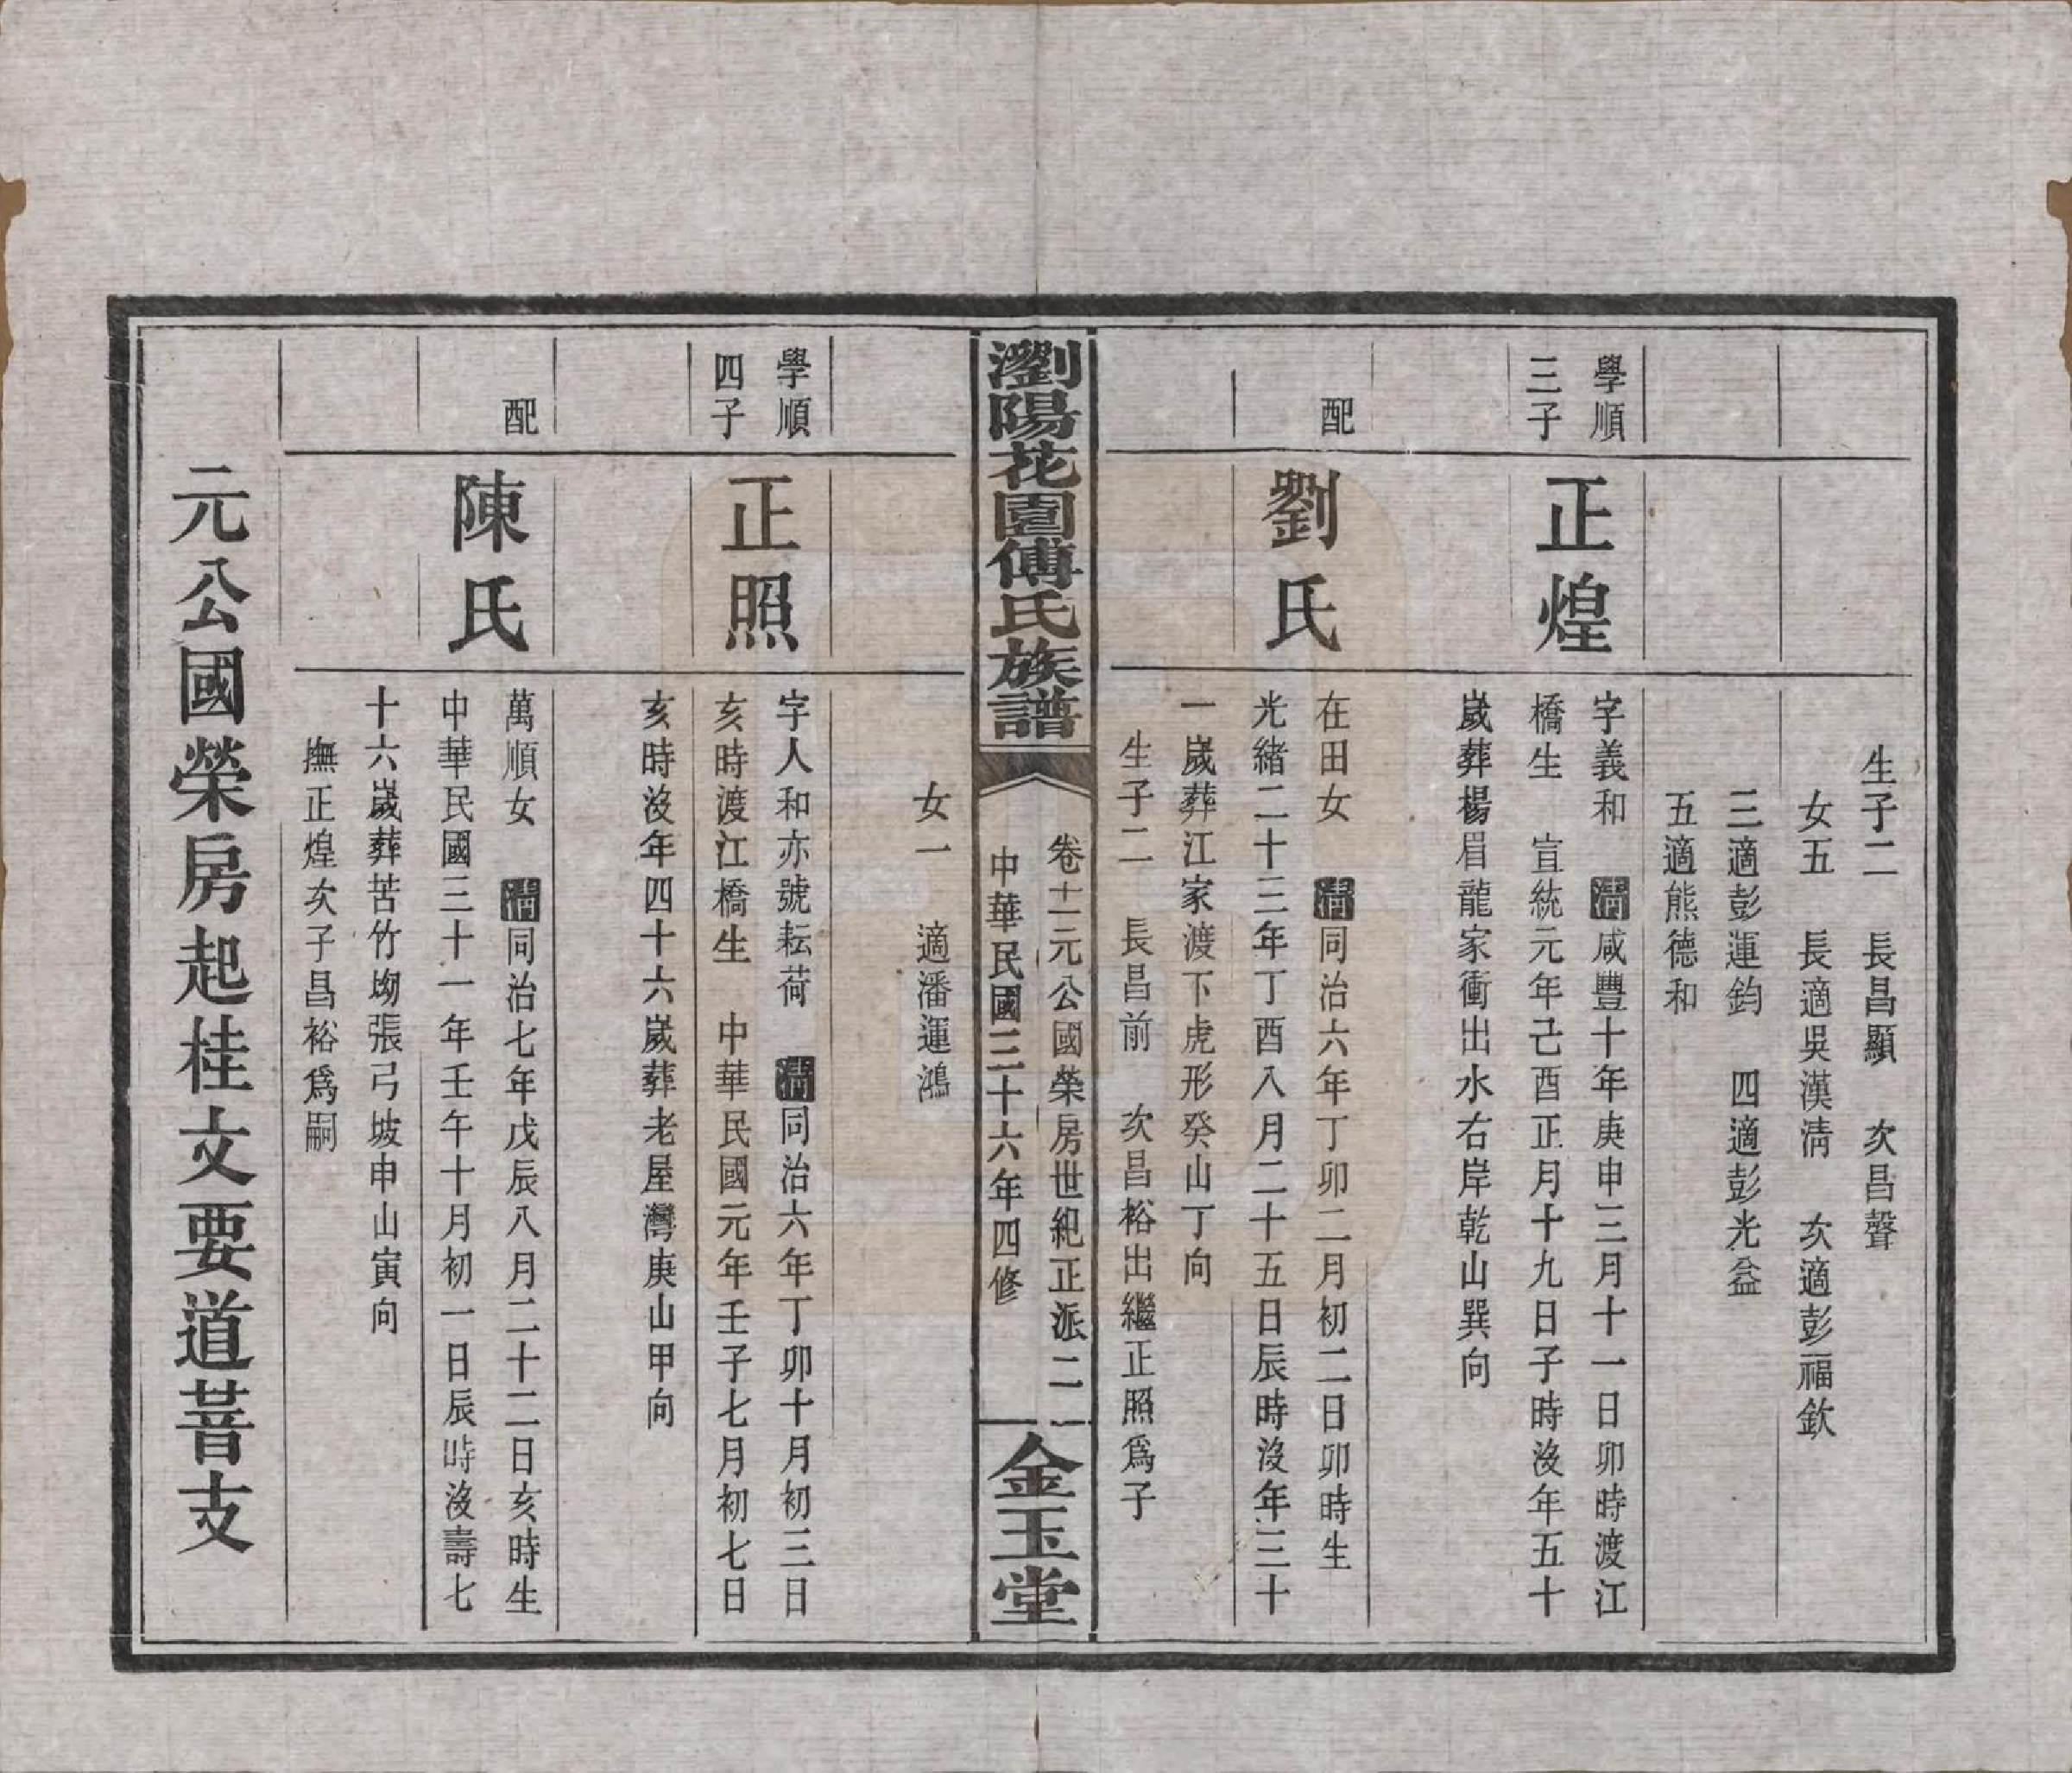 生子二　長昌顯　次昌聲
女五　長適吳漢淸　次適彭福欽
三適彭運鈞　四適彭光益
五適熊德和
學順
三子
正煌
字義和　淸咸豐十年庚申三月十一日卯時渡江
橋生　宣統元年己酉正月十九日子時沒年五十
歲葬楊眉龍家衝出水右岸乾山巽向
配
劉氏
在田女　淸同治六年丁卯二月初二日卯時生
光緒二十三年丁酉八月二十五日辰時沒年三十
一歲葬江家渡下虎形癸山丁向
生子二　長昌前　次昌裕出繼正照爲子
瀏陽花園傅氏族譜
卷十一元公國榮房世紀正派二一
中華民國三十六年四修
金玉堂
女一　適潘運鴻
學順
四子
正照
字人和亦號耘荷　淸同治六年丁卯十月初三日
亥時渡江橋生　中華民國元年壬子七月初七日
亥時沒年四十六歲葬老屋灣庚山甲向
配
陳氏
萬順女　淸同治七年戊辰八月二十二日亥時生
中華民國三十一年壬午十月初一日辰時沒壽七
十六歲葬苦竹坳張弓坡申山寅向
撫正煌次子昌裕爲嗣
元公國榮房起桂文要道萻支